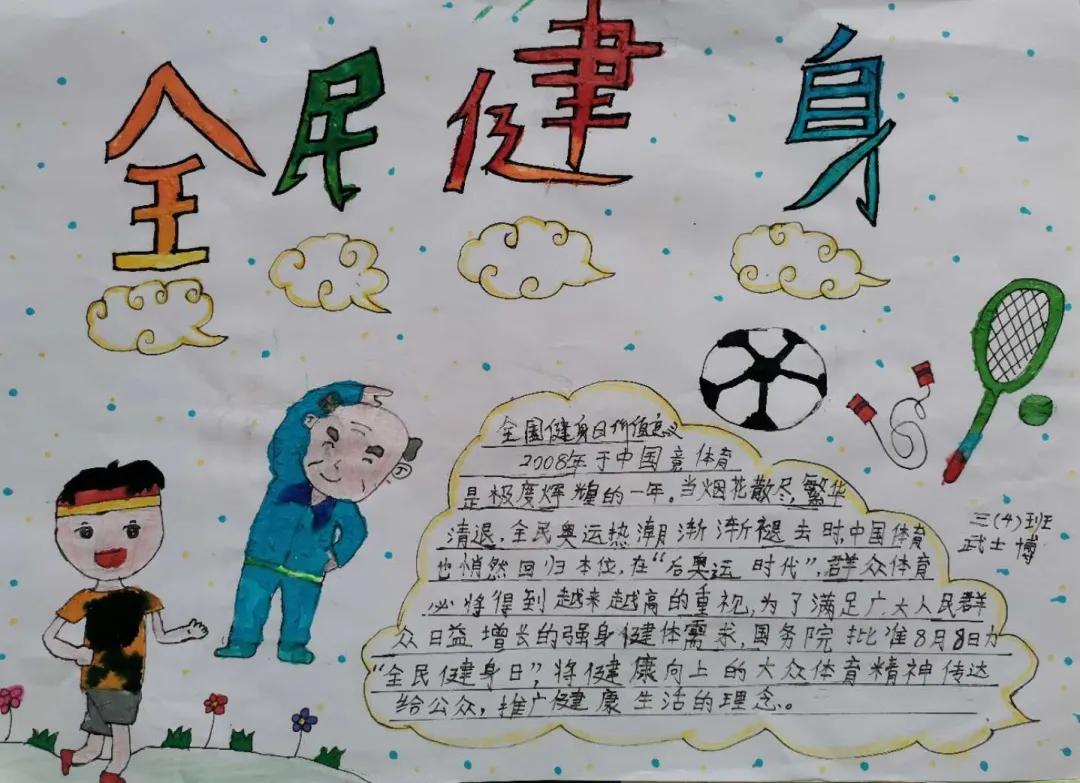 全民健身
全国健身日价值意义
2008年于中国竟体育
是极度辉煌的一年。当烟花散尽,繁华
清退,全民奥运热潮渐渐褪去时,中国体育
也悄然回归本位,在“后奥运时代”,群众体育
必将得到越来越高的重视,为了满足广大人民群
众日益增长的强身健体需求,国务院批准8月8日为
“全民健身日”,将健康向上的大众体育精神传达
给公众,推广健康生活的理念。
三(4)班
武士博